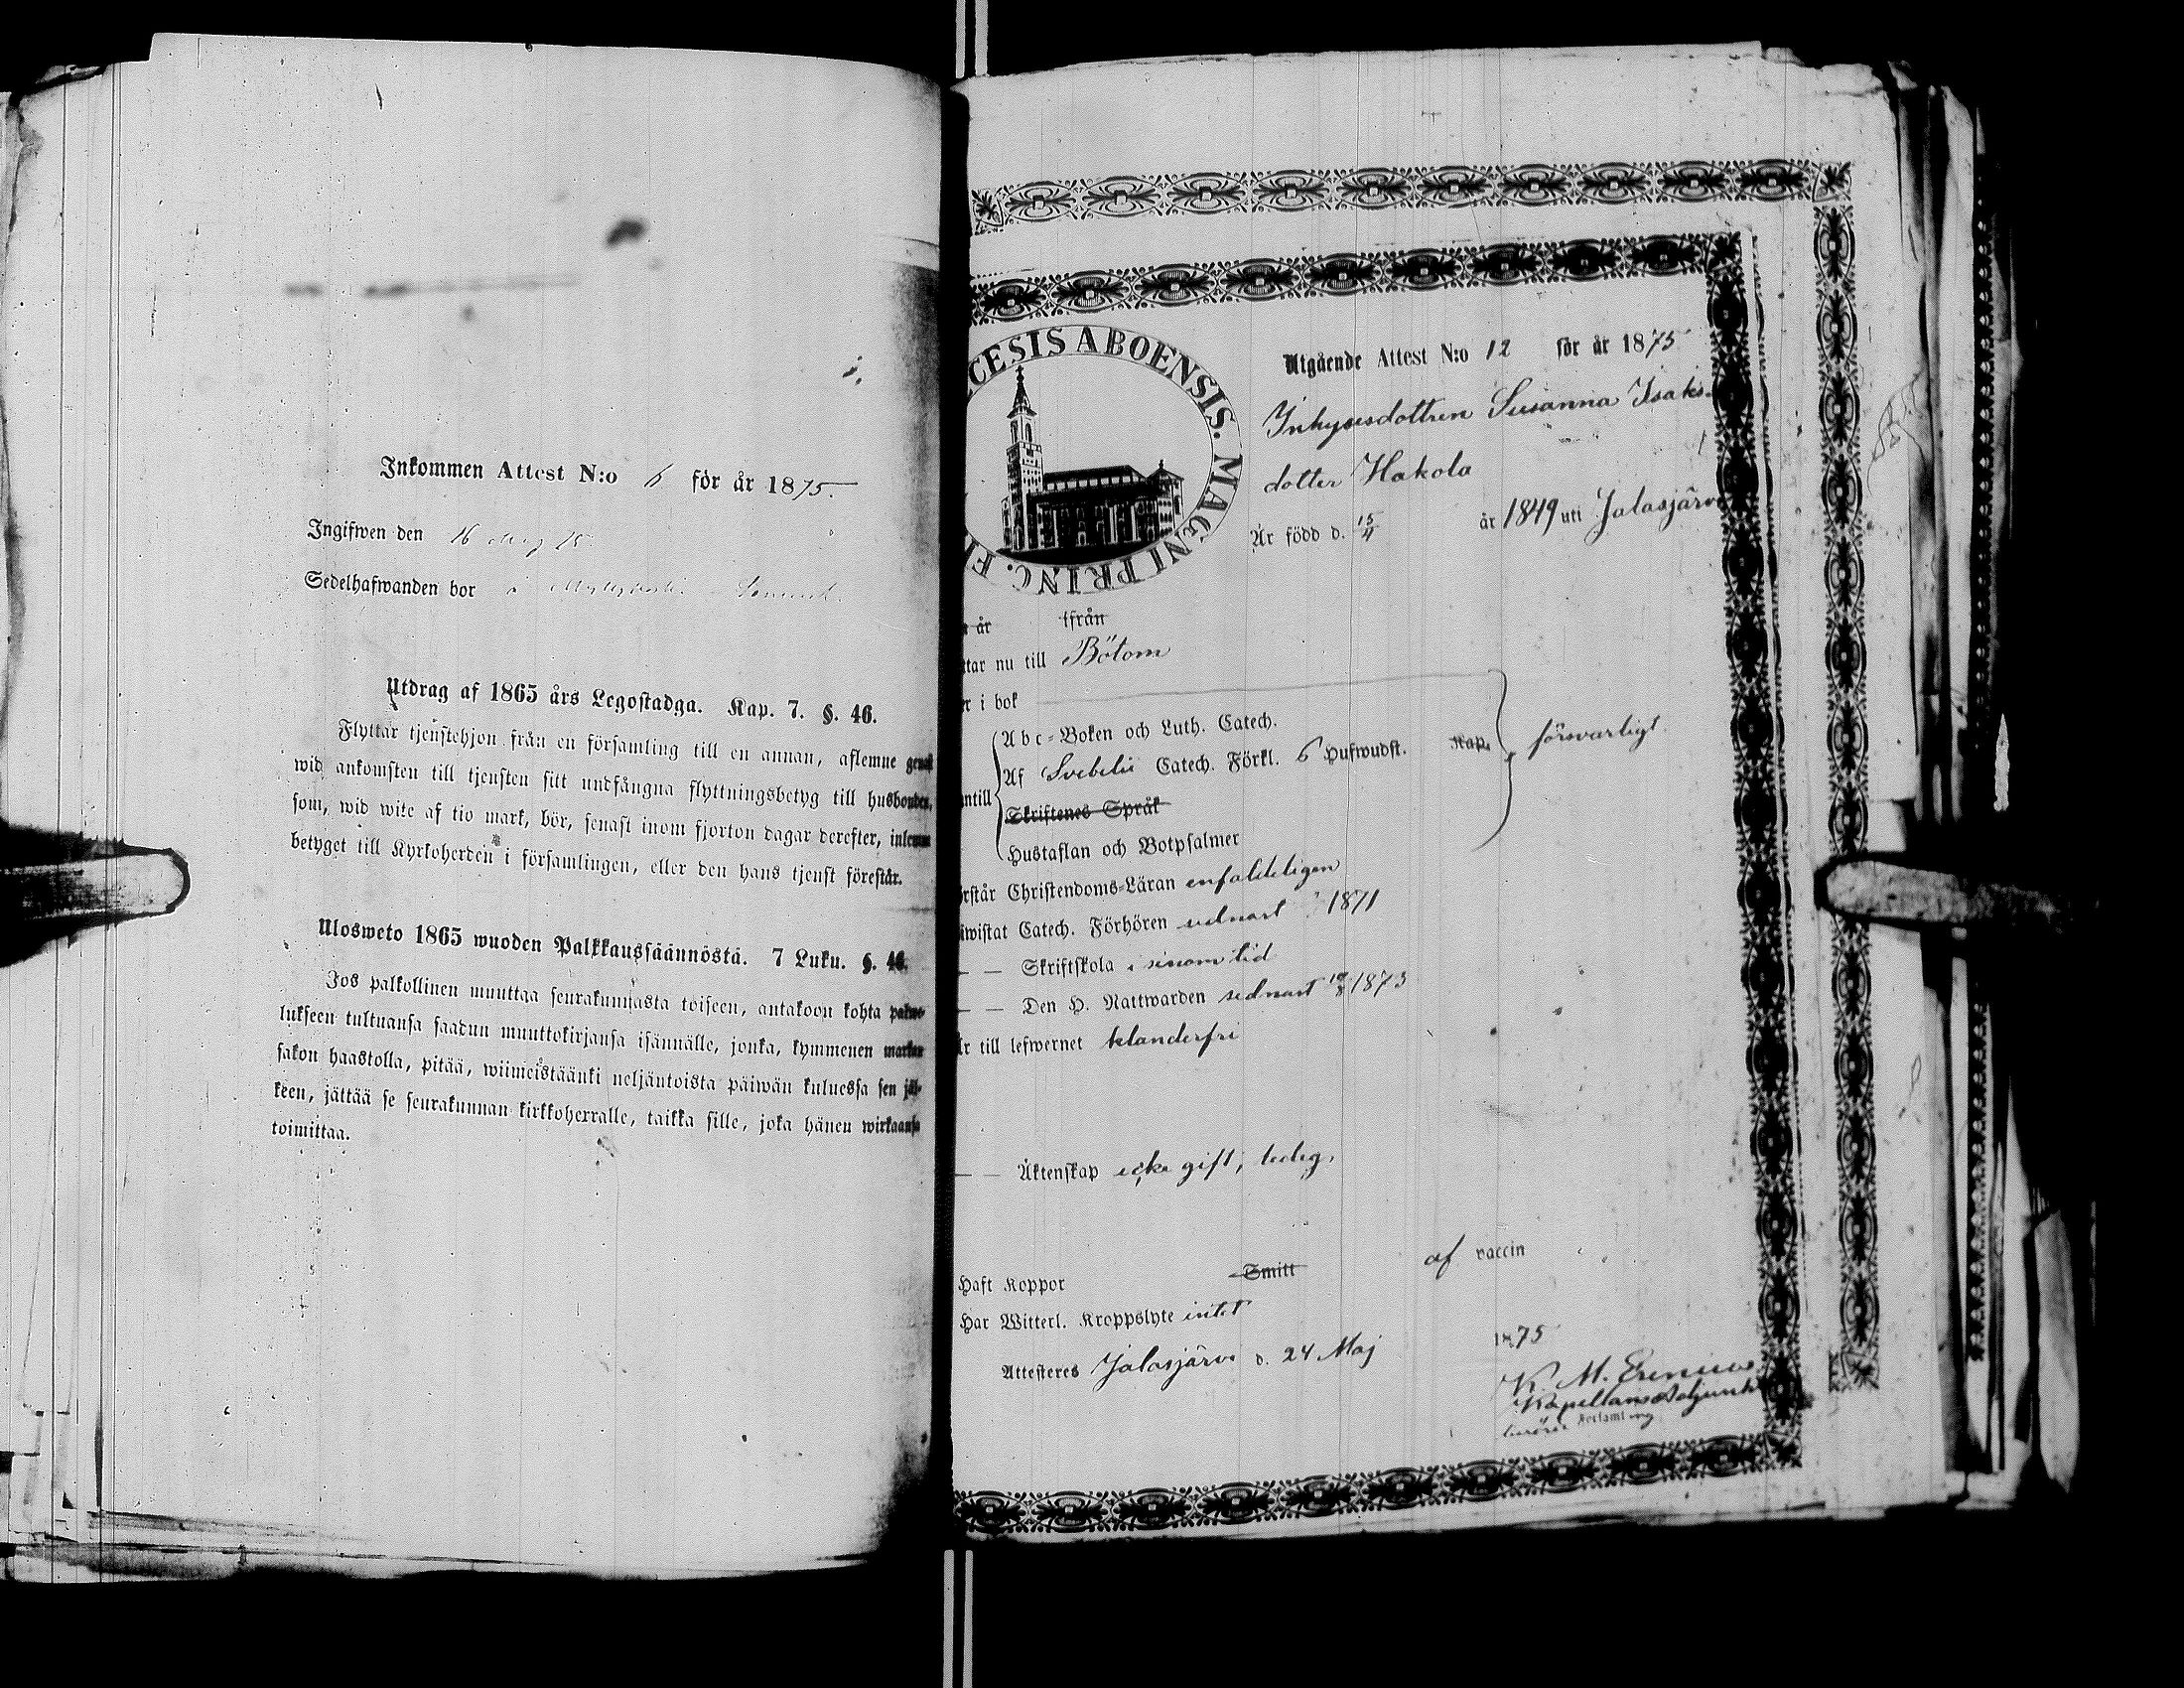 Inkommen Attest N:o 6 för år 1875.
Ingifwen den 16 75
Sedelhafwanden bor
Utdrag af 1865 års Legostadga. Kap. 7. §. 46.
Flyttar tjenstehjon från en församling till en annan, aflemne genast
wid ankomsten till tjensten sitt undfångna flyttningsbetyg till husbonden,
som, wid wite af tio mark, bör, senast inom fjorton dagar derefter, inlemna
betyget till Kyrkoherden i församlingen, eller den hans tjenst förestår.
Ulosweto 1865 wuoden Palkkaussäännöstä. 7 Luku. §. 46.
Jos palkollinen muuttaa seurakunnasta toiseen, antakoon kohta palwe-
lukseen tultuansa saadun muuttokirjansa isännälle, jonka, kymmenen markan
sakon haastolla, pitää, wiimeistäänki neljäntoista päiwän kuluessa sen jäl-
keen, jättää se seurakunnan kirkkoherralle, taikka sille, joka hänen wirkaansa
toimittaa.
CESIS ABOENSIS. MAGNI PRINC. FI
Utgående Attest N:o 12 för år 1875
Inhysesdottren Susanna Isaks-
dotter Hakola
Är född d. 15/4 år 1849 uti Jalasjärvi
år ifrån
ttar nu till Bötom
r i bok
Abc-Boken och Luth. Catech.
Af Svebelii Catech. Förkl. 6 Hufwudst. Kap. försvarligt
ntill
Skriftenes Språk
Hustaflan och Botpsalmer
rstår Christendoms-Läran enfaldeligen
iwistat Catech. Förhören sednast 1871
— — Skriftskola i sinom tid
— — Den H. Nattwarden sednast 1873
r till lefwernet klanderfri
— — Äktenskap icke gift, ledig.
Haft Koppor Smitt af vaccin
Har Witterl. Kroppslyte intet
Attesteres Jalasjärvi d. 24 Maj 1875
K. M.
Kapellansadjunkt